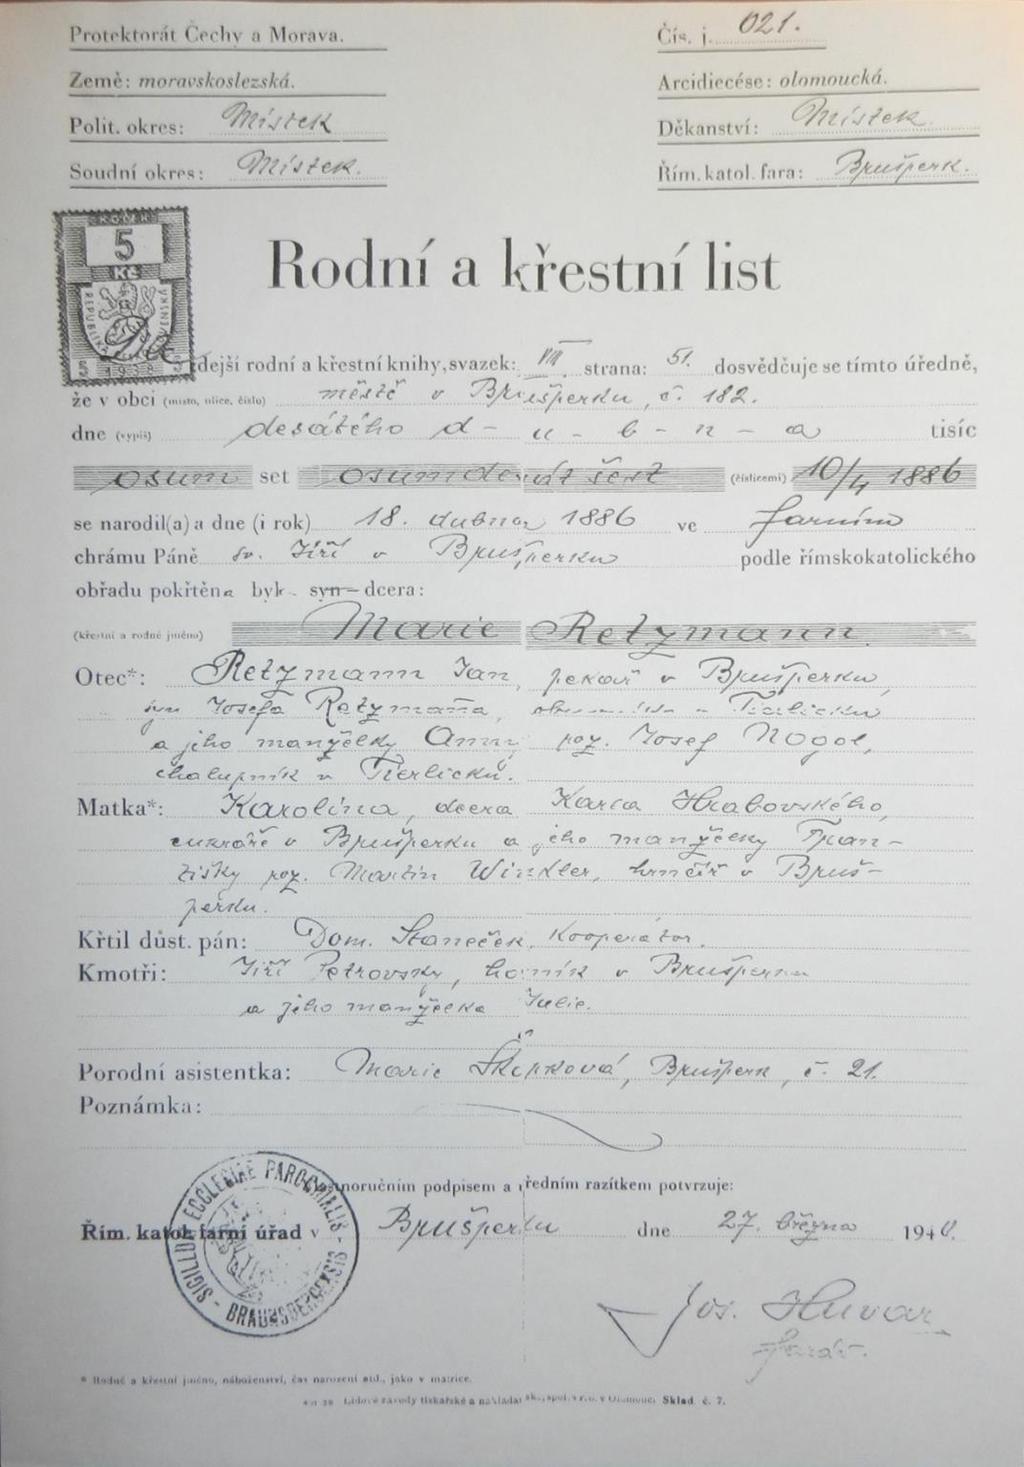 Protektorát Čechy a Morava.
Čís. j. 021.
Země: moravskoslezská.
Arcidiecése: olomoucká.
Polit. okres: Místek
Děkanství: Místek
Soudní okres: Místek.
Řím. katol. fara: Brušperk.
5
Kč
5 1938
Rodní a křestní list
dejší rodní a křestní knihy, svazek: VIII. strana: 51. dosvědčuje se tímto úředně,
že v obci (místo, ulice, číslo) městě v Brušperku, č. 182.
dne (vypiš) desátého d - u - b - n - a tisíc
osum set osumdesát šest (číslicemi) 10/4 1886
se narodil(a) a dne (i rok) 18. dubna 1886 ve farním
chrámu Páně sv. Jiří v Brušperku podle římskokatolického
obřadu pokřtěna byk syn dcera:
(křestní a rodné jméno) Marie Retzmann
Otec*: Retzmann Jan, pekař v Brušperku,
syn Josefa Retzmanna, v Těrlicku
a jeho manželky Anny, roz. Josef Nogol,
chalupník v Těrlicku.
Matka*: Karolina, dcera Karla Hrabovského,
cukráře v Brušperku a jeho manželky Fran-
tišky roz. Martin Winkler, hrnčíř v Bruš-
perku.
Křtil důst. pán: Dom. Staneček, Kooperátor.
Kmotři: Jiří Petrovsky, horník v Brušperku
a jeho manželka Julie.
Porodní asistentka: Marie Škrnková, Brušperk, č. 21.
Poznámka:
noručním podpisem a úředním razítkem potvrzuje:
Řím. katol. farní úřad v Brušperku dne 27. března 1940.
SIGILLUM ECCLESIAE PAROCHIALIS - BRAUNSBERGENSIS
Jos. Huvar
farář.
* Rodné a křestní jméno, náboženství, čas narození atd., jako v matrice.
Lidové závody tiskařské a nakladatelské, spol. s r. o. v Olomouci. Sklad. č. 7.